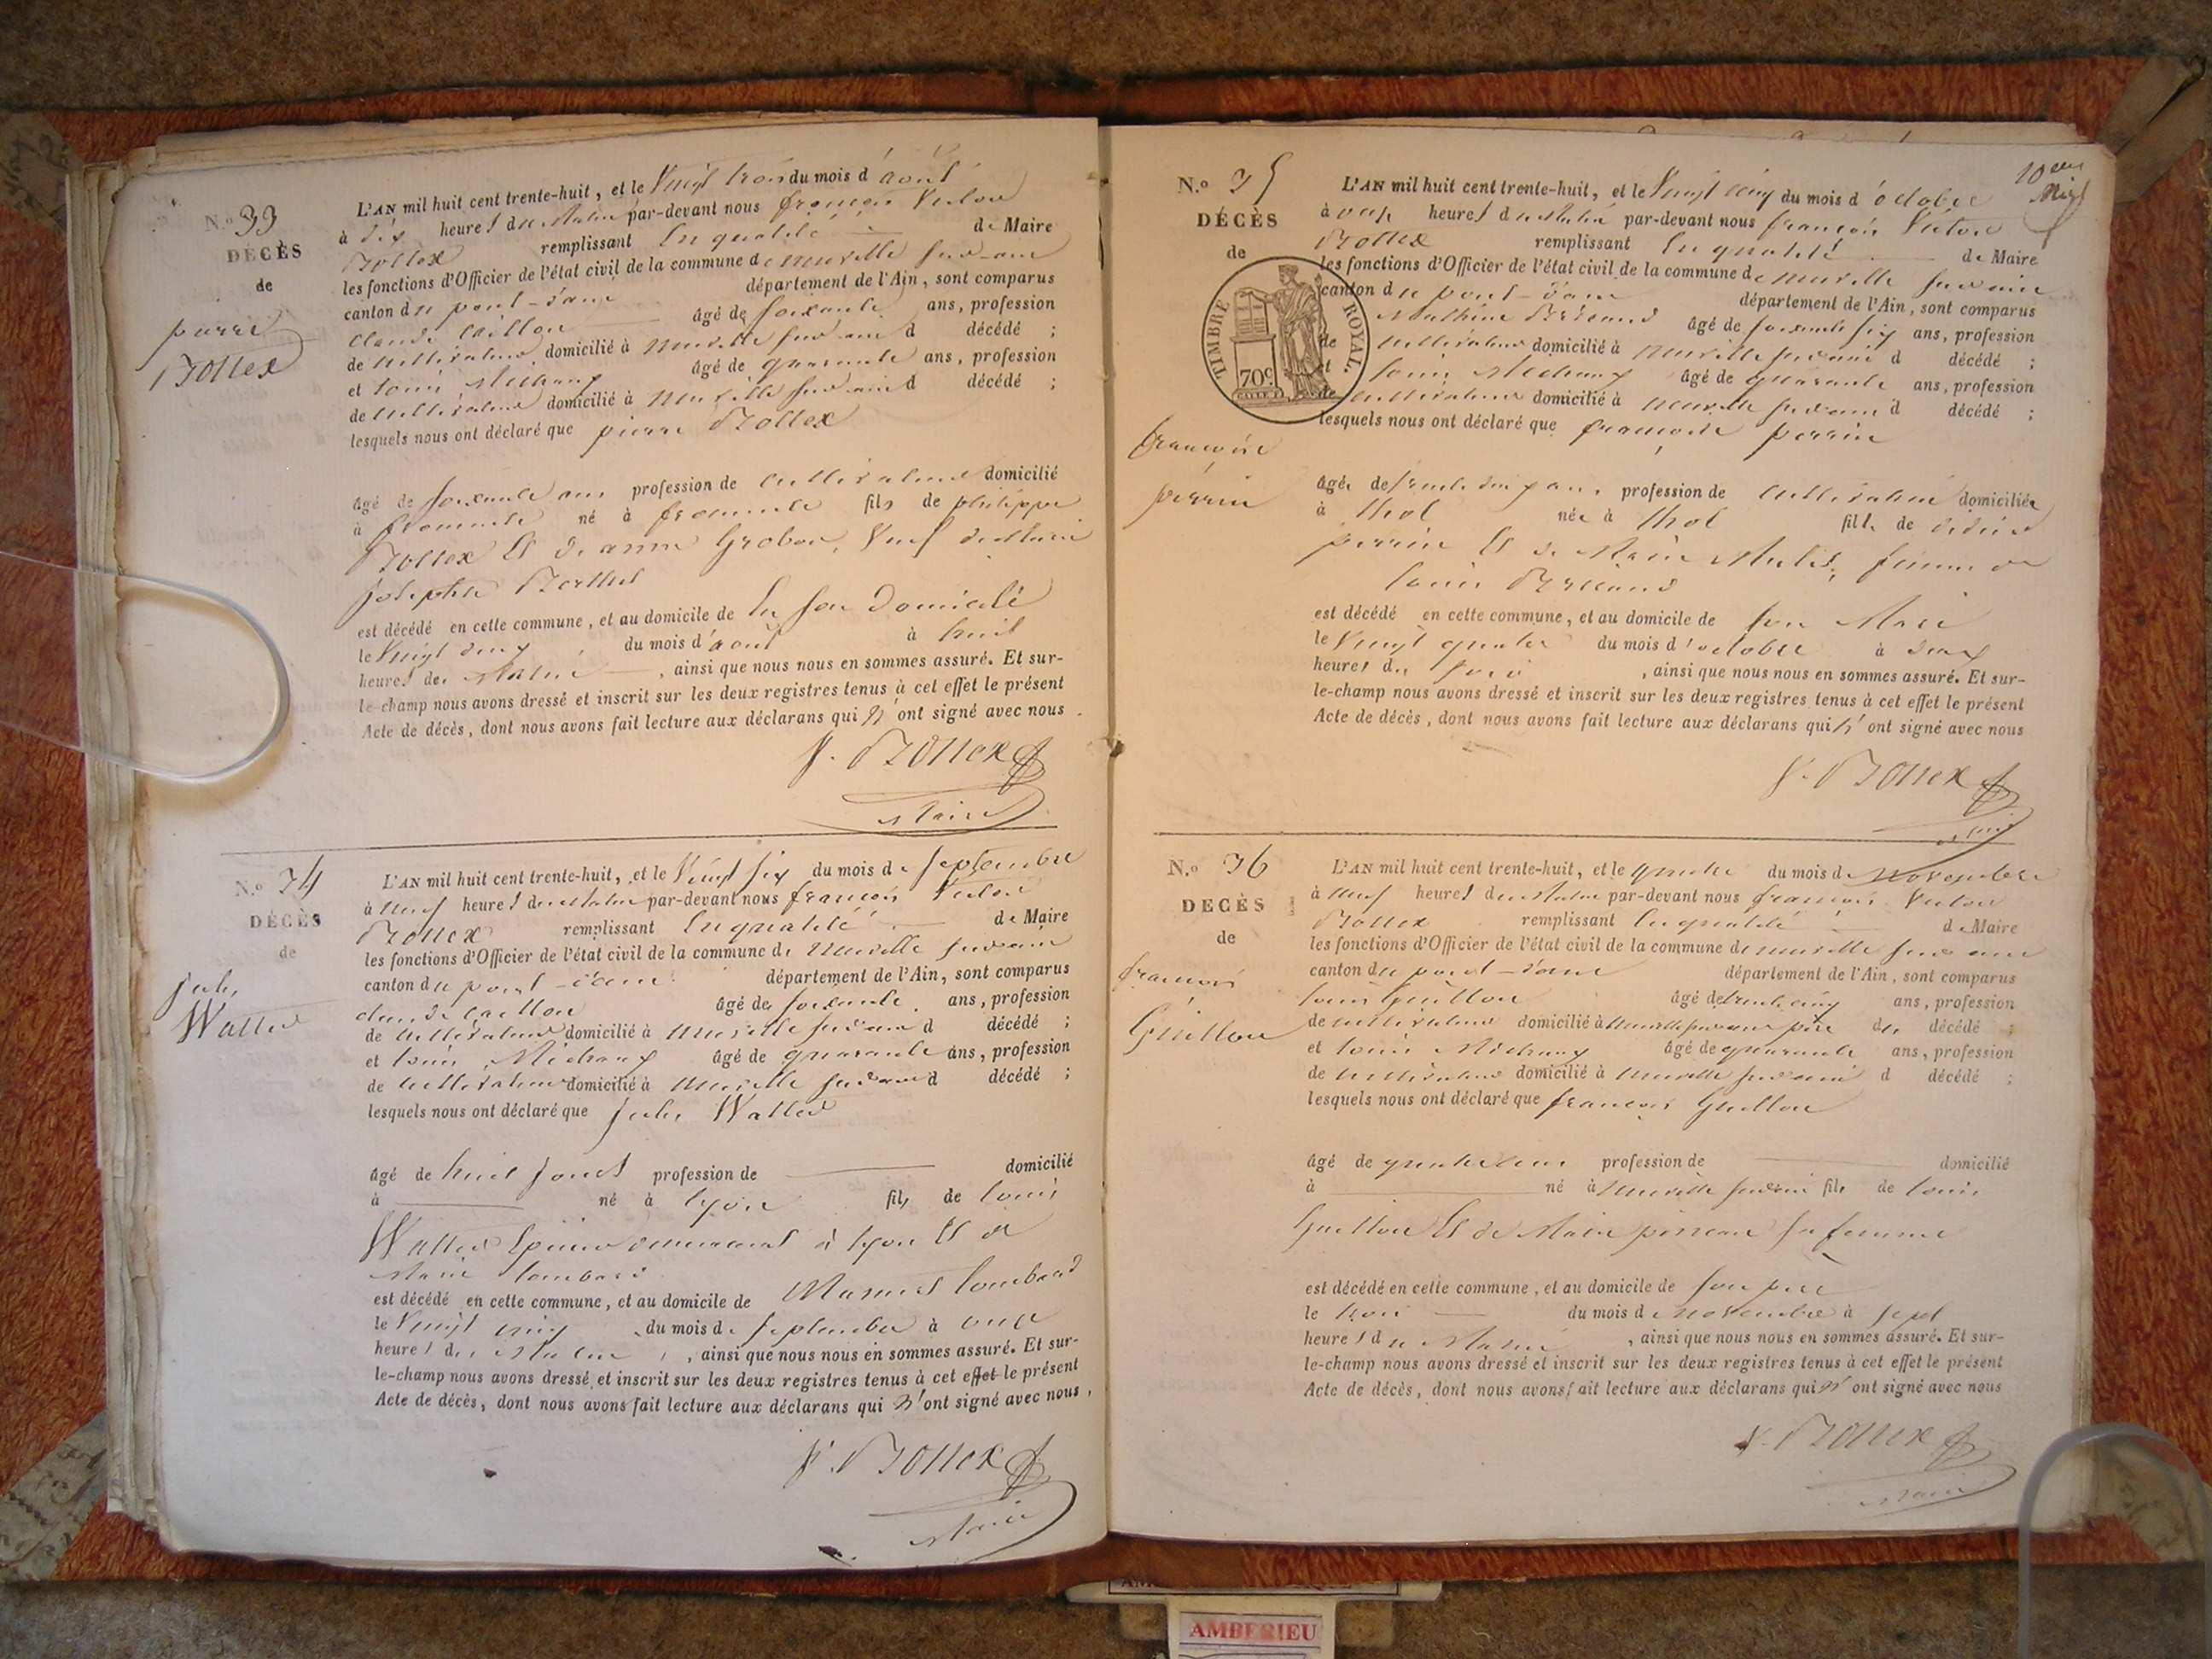 N.o 33
DÉCÈS
de
pierre
Bollex
L'AN mil huit cent trente-huit, et le Vingt trois du mois d'août
à dix heures du Matin par-devant nous françois Victor
Bollex remplissant En qualité de Maire
les fonctions d'Officier de l'état civil de la commune de neuville sur ain
canton du pont-d'ain département de l'Ain, sont comparus
Claude Caillon âgé de soixante ans, profession
de cultivateur domicilié à neuville sur ain d décédé ;
et louis Michaux âgé de quarante ans, profession
de cultivateur domicilié à neuville sur ain d décédé ;
lesquels nous ont déclaré que pierre Bollex
âgé de soixante ans profession de cultivateur domicilié
à fromente né à fromente fils de philippe
Bollex Et de anne Grobon, Veuf de Marie
josephte Berthet
est décédé en cette commune, et au domicile de En son Domicile
le Vingt deux du mois d'août à huit
heures de Matin, ainsi que nous nous en sommes assuré. Et sur-
le-champ nous avons dressé et inscrit sur les deux registres tenus à cet effet le présent
Acte de décès, dont nous avons fait lecture aux déclarans qui n'ont signé avec nous.
V. Bollex
Maire
N.o 34
DÉCÈS
de
jules
Watter
L'AN mil huit cent trente-huit, et le Vingt six du mois de septembre
à neuf heures du Matin par-devant nous françois Victor
Bollex remplissant En qualité de Maire
les fonctions d'Officier de l'état civil de la commune de neuville sur ain
canton du pont-d'ain département de l'Ain, sont comparus
claude caillon âgé de soixante ans, profession
de cultivateur domicilié à neuville sur ain d décédé ;
et louis Michaux âgé de quarante ans, profession
de cultivateur domicilié à neuville sur ain d décédé ;
lesquels nous ont déclaré que jules Watter
âgé de huit jours profession de domicilié
à né à lyon fils de louis
Watter Epicier demeurant à lyon Et de
Marie lombard
est décédé en cette commune, et au domicile de lombard
le Vingt cinq du mois de septembre à onze
heures du Matin, ainsi que nous nous en sommes assuré. Et sur-
le-champ nous avons dressé et inscrit sur les deux registres tenus à cet effet le présent
Acte de décès, dont nous avons fait lecture aux déclarans qui n'ont signé avec nous,
V. Bollex
Maire
10 eme
N.o 35
DÉCÈS
de
TIMBRE ROYAL.
70c
françoise
perrin
L'AN mil huit cent trente-huit, et le Vingt cinq du mois d'octobre
à onze heures du Matin par-devant nous françois Victor
Bollex remplissant En qualité de Maire
les fonctions d'Officier de l'état civil de la commune de neuville sur ain
canton du pont-d'ain département de l'Ain, sont comparus
âgé de soixante six ans, profession
de cultivateur domicilié à neuville sur ain d décédé ;
et louis Michaux âgé de quarante ans, profession
de cultivateur domicilié à neuville sur ain d décédé ;
lesquels nous ont déclaré que françoise perrin
âgée de ans, profession de cultivatrice domiciliée
à thol née à thol fille de
perrin Et de Marie femme de
louis
est décédé en cette commune, et au domicile de son Mari
le Vingt quatre du mois d'octobre à deux
heures du soir, ainsi que nous nous en sommes assuré. Et sur-
le-champ nous avons dressé et inscrit sur les deux registres tenus à cet effet le présent
Acte de décès, dont nous avons fait lecture aux déclarans qui n'ont signé avec nous
V. Bollex
N.o 36
DECÈS
de
françois
Guillon
L'AN mil huit cent trente-huit, et le quatre du mois de novembre
à neuf heures du Matin par-devant nous françois Victor
Bollex remplissant En qualité de Maire
les fonctions d'Officier de l'état civil de la commune de neuville sur ain
canton du pont-d'ain département de l'Ain, sont comparus
louis Guillon âgé de trente cinq ans, profession
de cultivateur domicilié à neuville sur ain père du décédé ;
et louis Michaux âgé de quarante ans, profession
de cultivateur domicilié à neuville sur ain d décédé ;
lesquels nous ont déclaré que françois Guillon
âgé de quatre ans profession de domicilié
à né à neuville sur ain fils de louis
Guillon Et de Marie sa femme
est décédé en cette commune, et au domicile de son père
le trois du mois de novembre à sept
heures du Matin, ainsi que nous nous en sommes assuré. Et sur-
le-champ nous avons dressé et inscrit sur les deux registres tenus à cet effet le présent
Acte de décès, dont nous avons fait lecture aux déclarans qui n'ont signé avec nous
V. Bollex
Maire
AMBERIEU